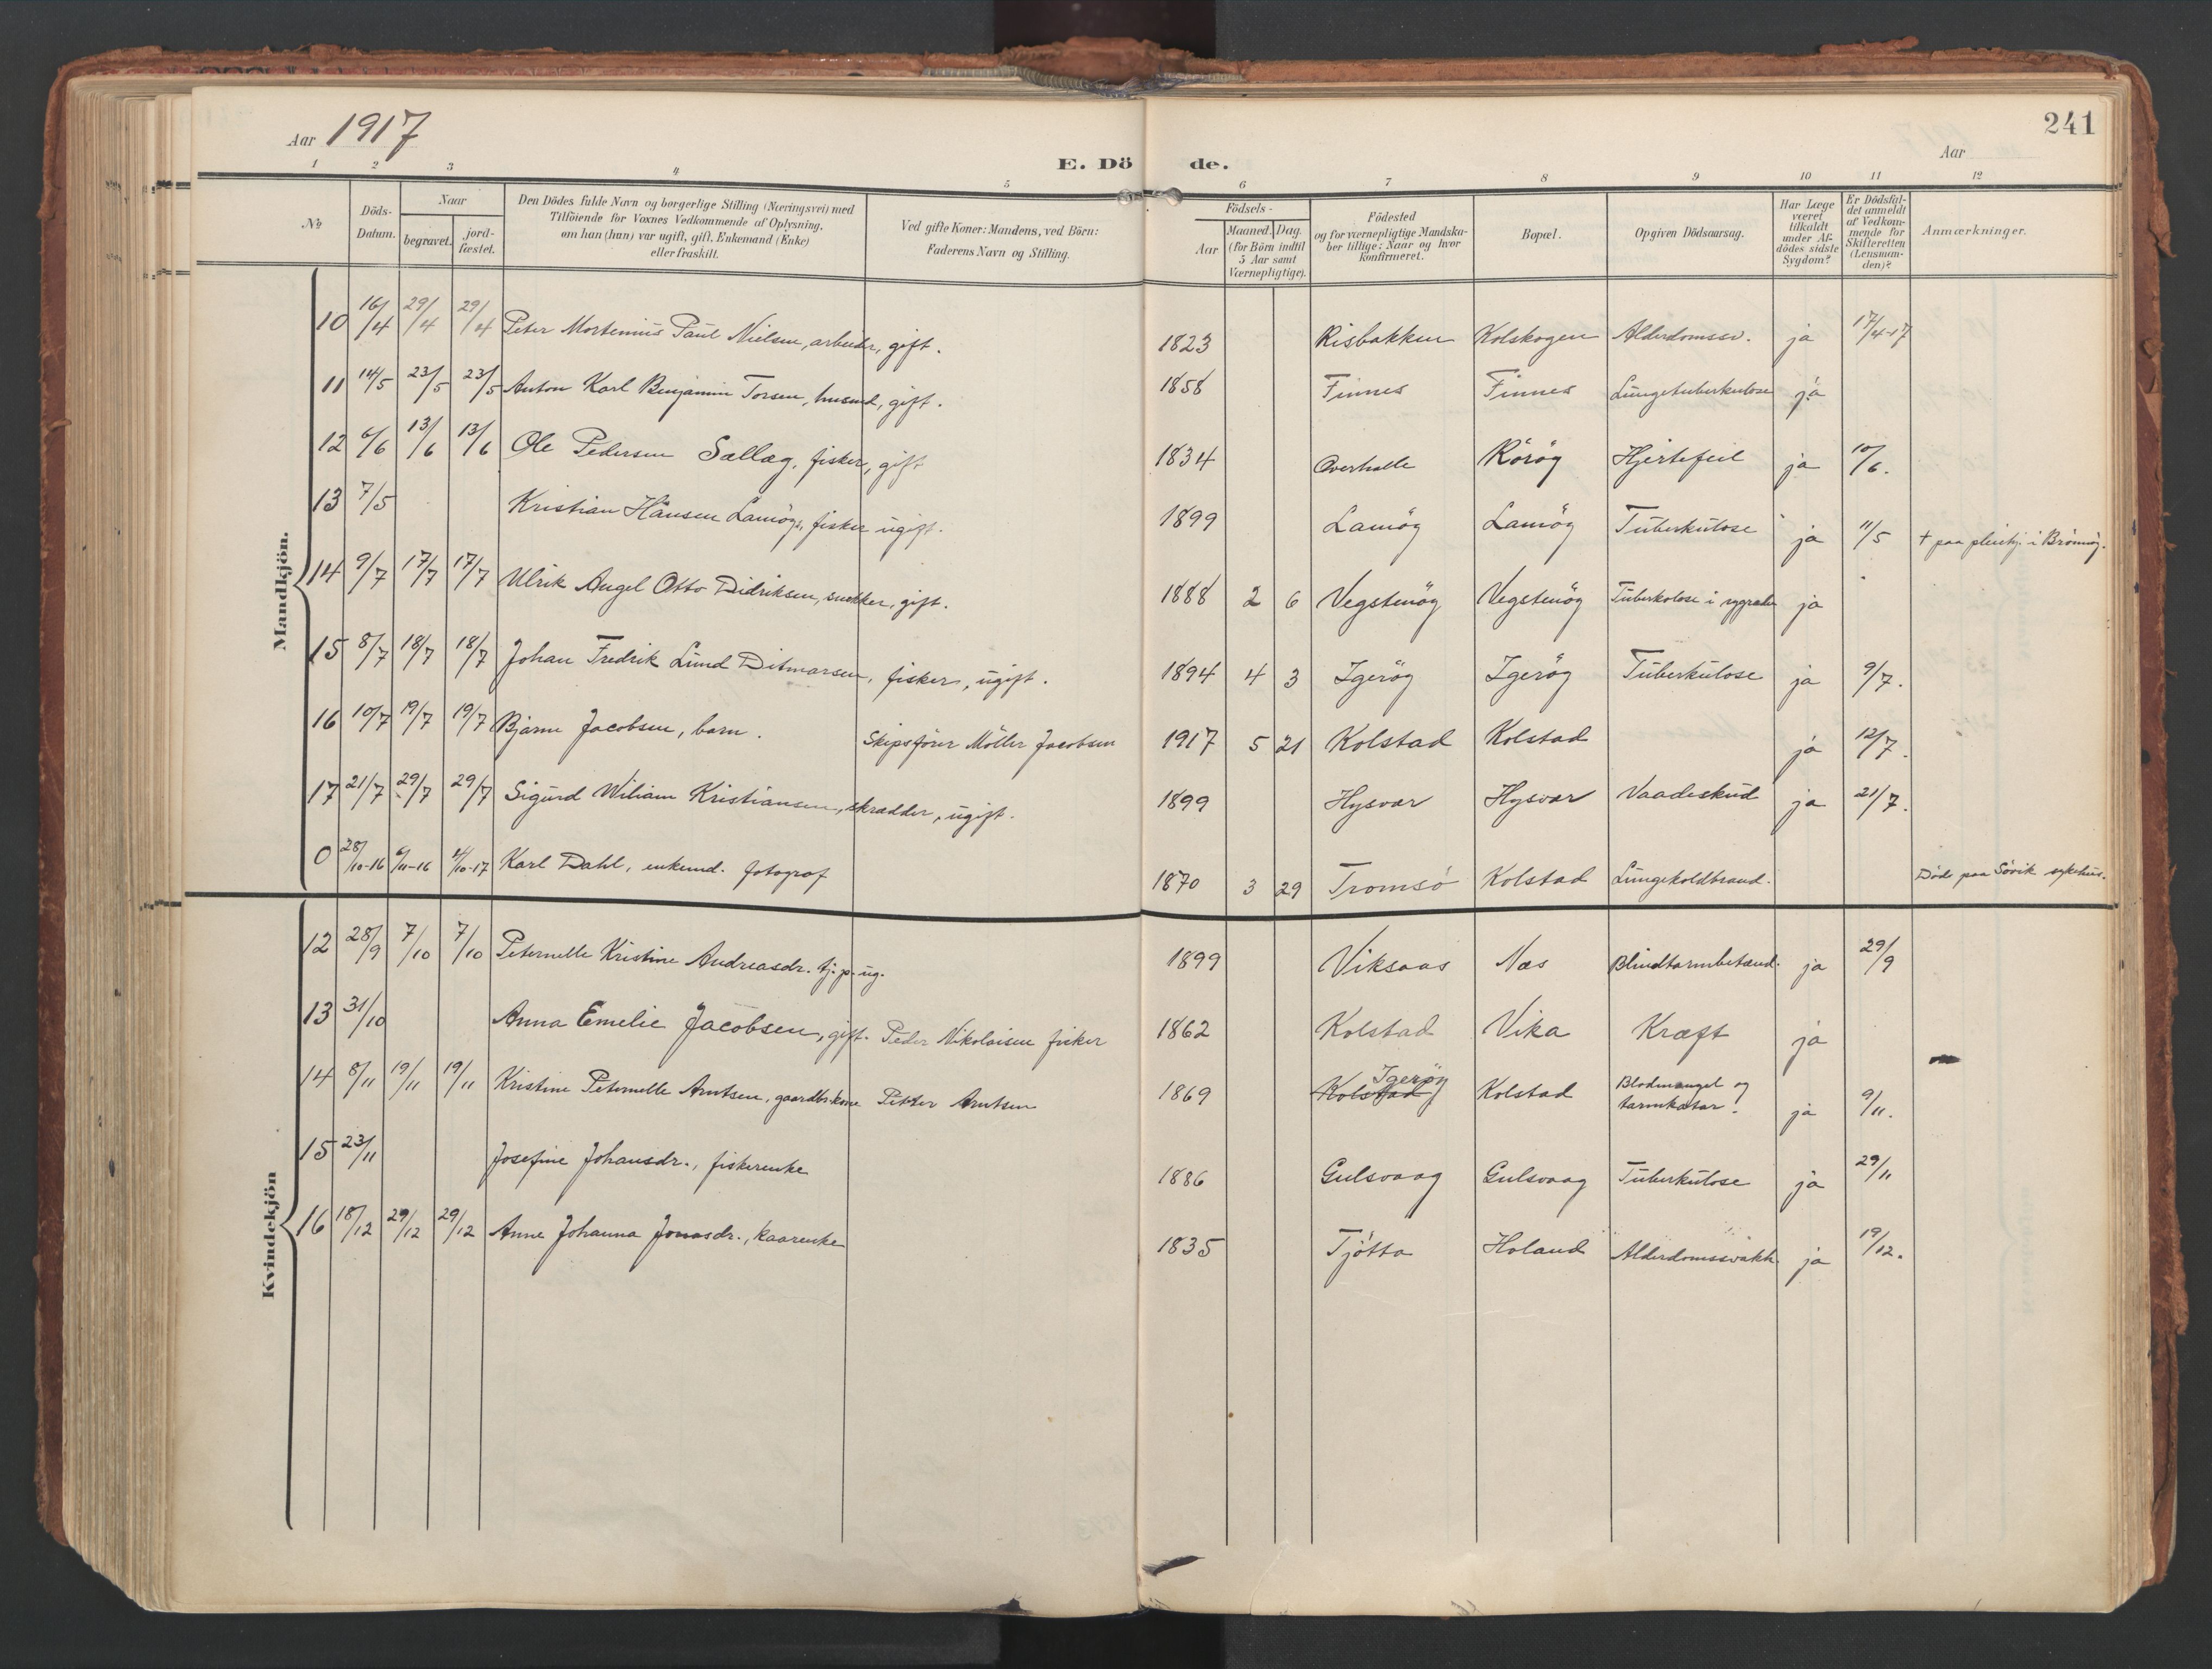 Aar 1917
241
E. Dö de.
Aar
1 2 3 4 5 6 7 8 9 10 11 12
No
Döds-Datum.
Naar
begravet.
jord-fæstet.
Den Dödes fulde Navn og borgerlige Stilling (Næringsvei) med
Tilföiende for Voxnes Vedkommende af Oplysning,
om han (hun) var ugift, gift, Enkemand (Enke)
eller fraskilt.
Ved gifte Koner: Mandens, ved Börn:
Faderens Navn og Stilling.
Födsels-
Aar
Maaned. Dag.
(for Börn indtil
5 Aar samt
Værnepligtige).
Födested
og for værnepligtige Mandska-
ber tillige: Naar og hvor
konfirmeret.
Bopæl.
Opgiven Dödsaarsag.
Har Læge
været
tilkaldt
under Af-
dödes sidste
Sygdom?
Er Dödsfal-
det anmeldt
af Vedkom-
mende for
Skifteretten
(Lensman-
den)?
Anmærkninger.
Mandkjön.
10 16/4 29/4 29/4 Peter Mortenius Paul Nielsen, arbeider, gift. 1823 Risbakken Kolskogen Alderdomssv. ja 17/4-17
11 14/5 23/5 23/5 Anton Karl Benjamin Torsen, husmd, gift. 1858 Finnes Finnes Lungetuberkulose ja
12 6/6 13/6 13/6 Ole Pedersen Sællæg, fisker, gift 1834 Overhalle Rörög Hjertefeil ja 10/6.
13 7/5 Kristian Hansen Lamög, fisker ugift. 1899 Lamög Lamög Tuberkulose ja 11/5 + paa pleiehj. i Brönnög.
14 9/7 17/7 17/7 Ulrik Angel Otto Didriksen, snekker, gift. 1888 2 6 Vegstenög Vegstenög Tuberkolose i rygraden ja
15 8/7 18/7 18/7 Johan Fredrik Lund Ditmarsen, fisker, ugift. 1894 4 3 Igerög Igerög Tuberkulose ja 9/7.
16 10/7 19/7 19/7 Bjarne Jacobsen, barn. Skipsförer Möller Jacobsen 1917 5 21 Kolstad Kolstad ja 12/7.
17 21/7 29/7 29/7 Sigurd Wiliam Kristiansen, skrædder, ugift. 1899 Hysvær Hysvær Vaadeskud ja 21/7.
0 28/10-16 6/11-16 4/10-17 Karl Dahl, enkemd. fotograf 1870 3 29 Tromsö Kolstad Lungekoldbrand. Död paa Sövik sykehus.
Kvindekjön
12 28/9 7/10 7/10 Peternelle Kristine Andreasdr. tj. p. ug. 1899 Viksaas Næs Blindtarmbetænd. ja 29/9
13 31/10 Anna Emelie Jacobsen, gift. Peder Nikolaisen fisker 1862 Kolstad Vika Kræft ja
14 8/11 19/11 19/11 Kristine Peternelle Arntsen, gaardbr.kone Petter Arntsen 1869 Kolstad Igerög Kolstad Blodmangel og tarmkatar! ja 9/11.
15 23/11 Josefine Johansdr., fiskerenke 1886 Gulsvaag Gulsvaag Tuberkulose ja 29/11
16 18/12 29/12 29/12 Anne Johanna Jonasdr., kaarenke 1835 Tjötta Holand Alderdomssvækk. ja 19/12.